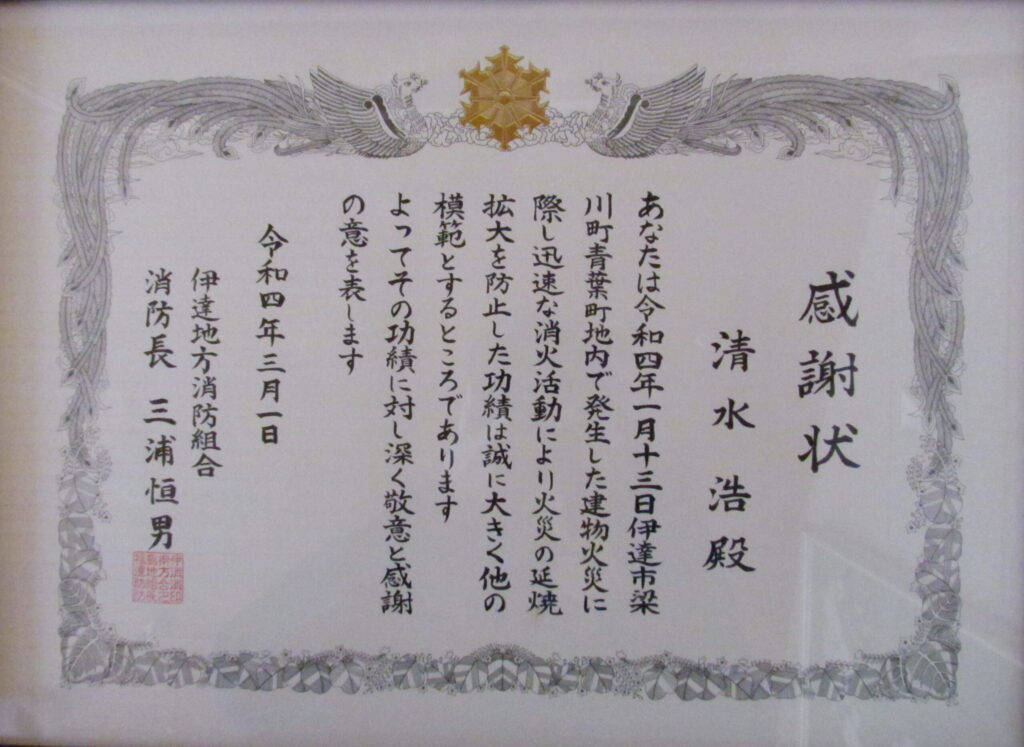 感謝状
清水浩殿
あなたは令和四年一月十三日伊達市梁
川町青葉町地内で発生した建物火災に
際し迅速な消火活動により火災の延焼
拡大を防止した功績は誠に大きく他の
模範とするところであります
よってその功績に対し深く敬意と感謝
の意を表します
令和四年三月一日
伊達地方消防組合
消防長 三浦恒男